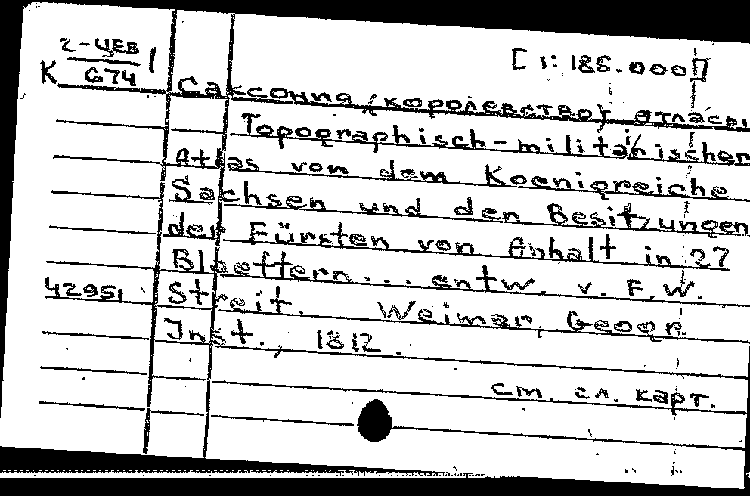 2-ЦЕВ
К G74
[1:185.000]
Саксония (королевство), атласы
Topographisch-militärischer
Atlas von dem Koenigreiche
Sachsen und den Besitzungen
der Fürsten von Anhalt in 27
Blaettern... entw. v. F.W.
42951 Streit. Weimar, Geogr.
Inst., 1812.
см. гл. карт.